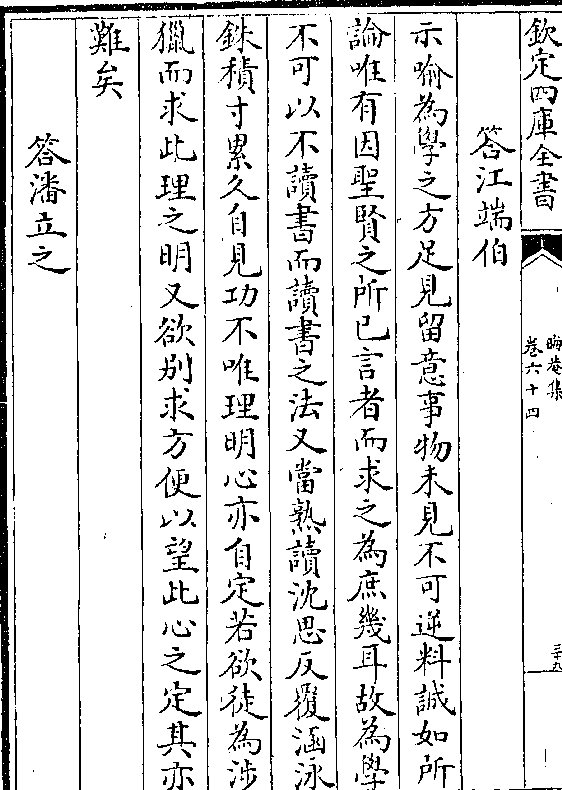 欽定四庫全書
晦菴集
卷六十四
三十九
答江端伯
示喻為學之方足見留意事物未見不可逆料誠如所
論唯有因聖賢之所已言者而求之為庶幾耳故為學
不可以不讀書而讀書之法又當熟讀沈思反覆涵泳
銖積寸累久自見功不唯理明心亦自定若欲徒為涉
獵而求此理之明又欲别求方便以望此心之定其亦
難矣
答潘立之